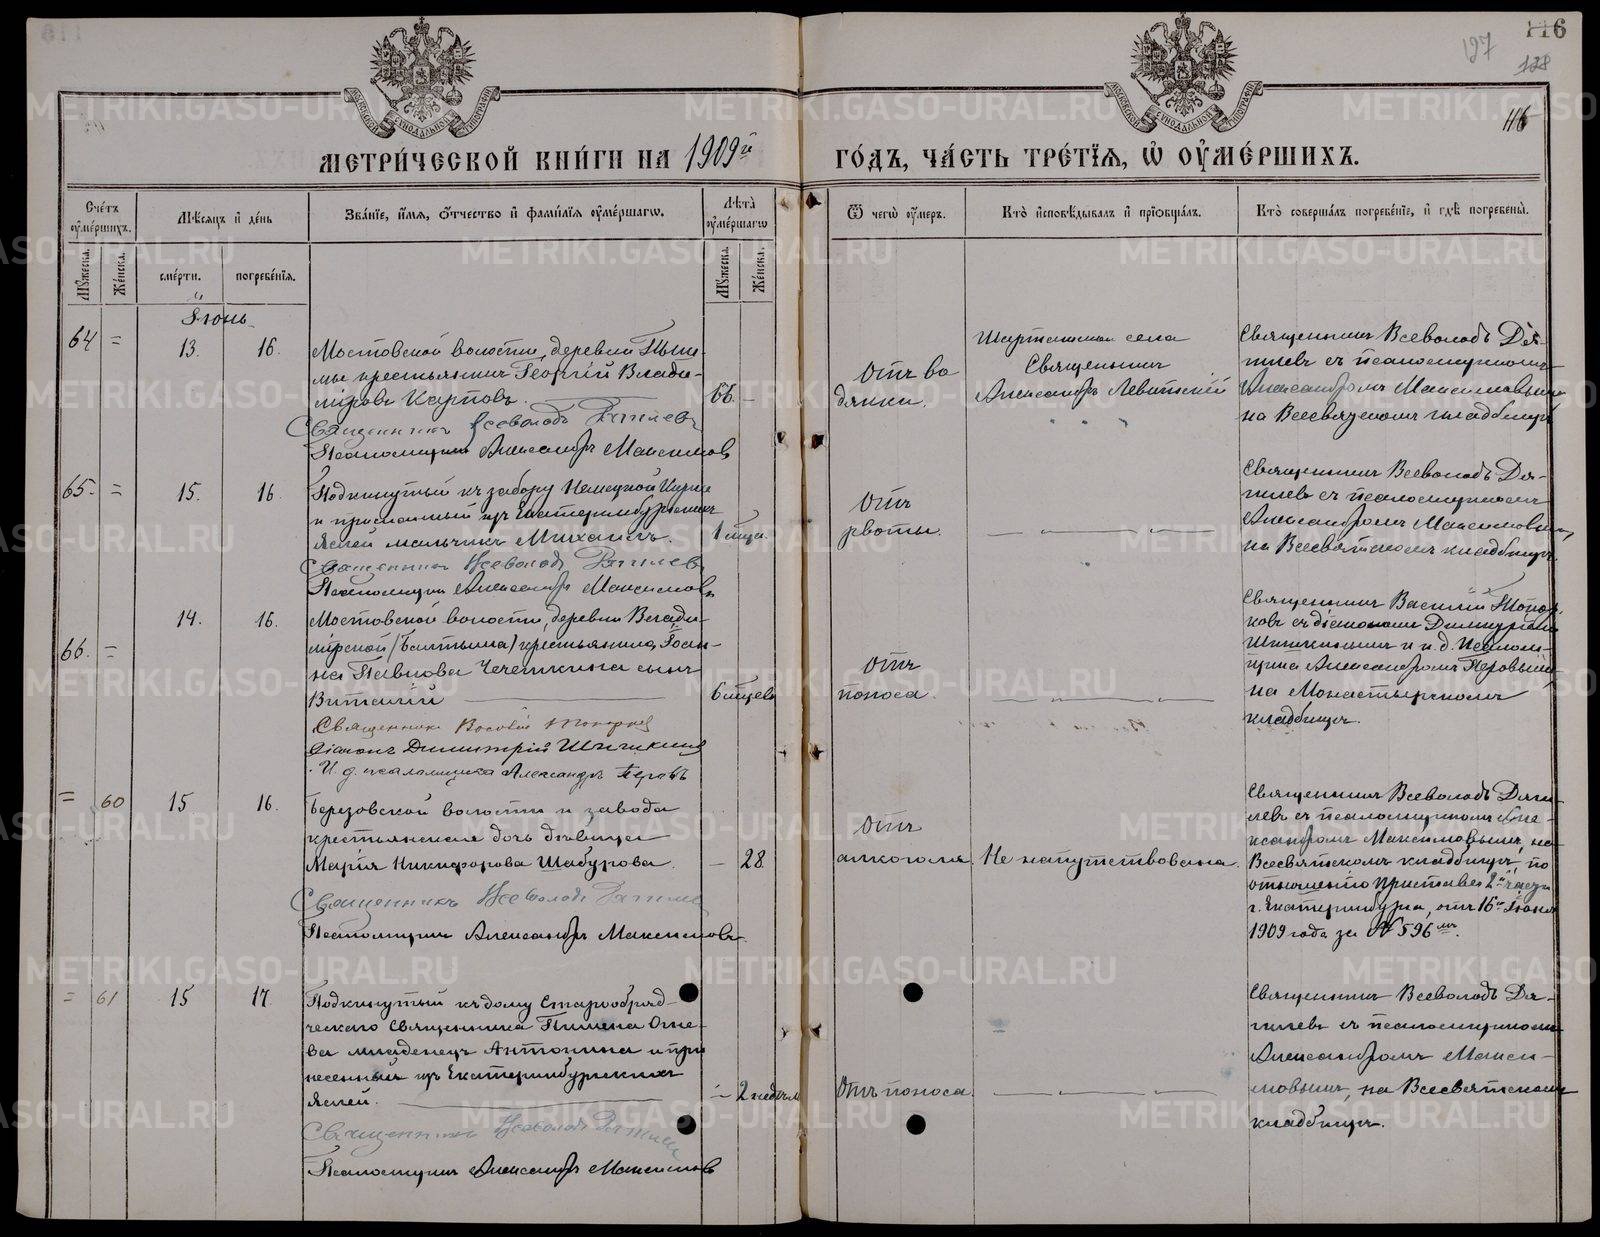 116
127
128
116
МЕТРИ́ЧЕСКОЙ КНИ́ГИ НА 1909й ГО́ДЪ, ЧА́СТЬ ТРЕ́ТІѦ, Ѽ ОУМЕ́РШИХЪ.
Сче́тъ оуме́ршихъ.
Мѣсяцъ и де́нь
Зва́ніе, и́мя, о́тчество и фами́лія оуме́ршагѡ.
Лѣта̀ оуме́ршагѡ
Ѿ чегѡ̀ оу́меръ.
Кто̀ и҆сповѣ́дывалъ и҆ прїѡбща́лъ.
Кто̀ соверша́лъ погребе́ніе, и҆ гдѣ̀ погребены̀.
Му́жеска.
Же́нска.
сме́рти.
погребе́нія.
Му́жеска.
Же́нска.
Іюнь
64 = 13. 16. Мостовской волости, деревни Пыш-
мы крестьянинъ Георгій Влади-
міровъ Карповъ. 66. –
Священникъ Всеволодъ Дягилевъ
Псаломщикъ Александръ Максимовъ
Отъ во
дянки.
села
Священникъ
Александръ Левитскій
Священникъ Всеволодъ Дя-
гилевъ съ псаломщикомъ
Александромъ Максимовымъ
на Всесвятскомъ кладбищѣ
65. = 15. 16. Подкинутый къ забору Немецкой Кирки
и присланный изъ Екатеринбургскихъ
яслей мальчикъ Михаилъ. 1 мѣся.
Священникъ Всеволодъ Дягилевъ
Псаломщикъ Александръ Максимовъ
Отъ
рвоты.
Священникъ Всеволодъ Дя-
гилевъ съ псаломщикомъ
Александромъ Максимовымъ,
на Всесвятскомъ кладбищѣ.
66. = 14. 16. Мостовской волости, деревни Влади-
мірской /Балтыма/ крестьянина Іоан-
на Павлова Чечеткина сынъ
Виталій 6 мѣсяцевъ
Священникъ Василій Топорковъ
Діаконъ Димитрій Шишкинъ
И. д. псаломщика Александръ Перовъ
Отъ
поноса.
Священникъ Василій Топор-
ковъ съ діакономъ Димитріемъ
Шишкинымъ и и. д. Псалом-
щика Александромъ Перовымъ
на Монастырскомъ
кладбищѣ.
= 60 15 16. Березовской волости и завода
крестьянская дочь дѣвица
Марія Никифорова Шабурова. – 28.
Священникъ Всеволодъ Дягилевъ
Псаломщикъ Александръ Максимовъ.
Отъ
алкоголя.
Не напутствована.
Священникъ Всеволодъ Дяги-
левъ съ псаломщикомъ Але-
ксандромъ Максимовымъ, на
Всесвятскомъ кладбищѣ, по
отношенію Пристава 2й части
г. Екатеринбурга, отъ 16го Іюня
1909 года за № 596мъ.
= 61 15 17. Подкинутый къ дому Старообряд-
ческаго Священника Пимена Огне-
ва младенецъ Антонина и при
несенный изъ Екатеринбургскихъ
яслей. – 2 недѣли
Священникъ Всеволодъ Дягилевъ
Псаломщикъ Александръ Максимовъ
Отъ поноса.
Священникъ Всеволодъ Дя-
гилевъ съ псаломщикомъ
Александромъ Макси-
мовымъ, на Всесвятскомъ
кладбищѣ.
METRIKI.GASO-URAL.RU